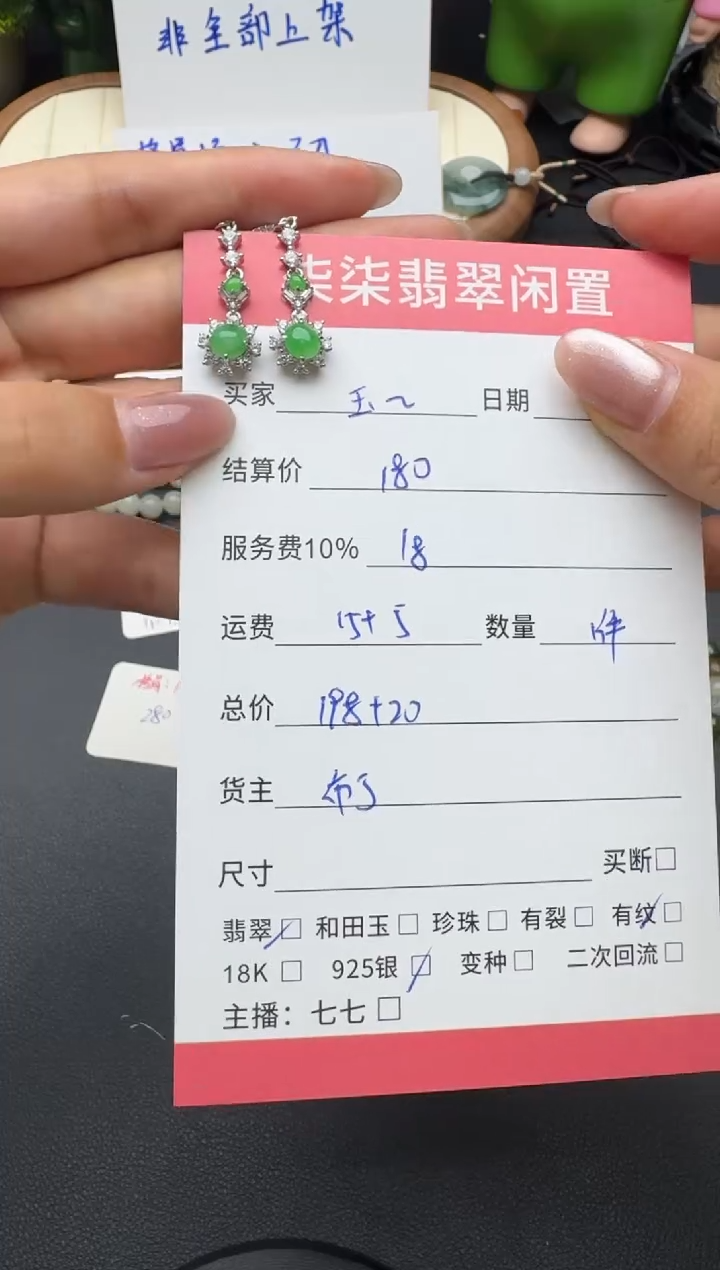 非全部上架
柒柒翡翠闲置
买家 玉~ 日期
结算价 180
服务费10% 18
运费 15+5 数量 1件
总价 198+20
货主 布丁
尺寸 买断□
翡翠□ 和田玉□ 珍珠□ 有裂□ 有纹□
18K□ 925银□ 变种□ 二次回流□
主播：七七□
280